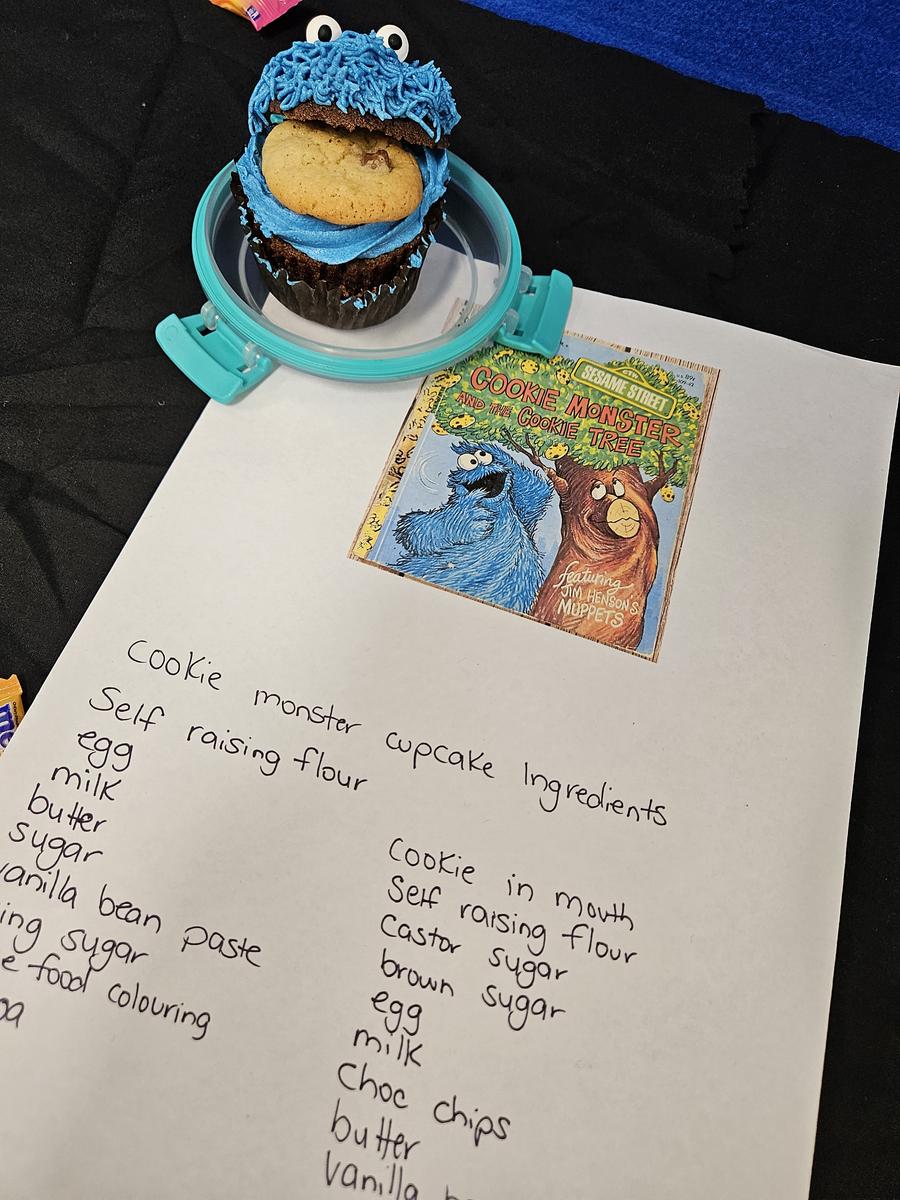 SESAME STREET
COOKIE MONSTER
AND THE COOKIE TREE
featuring
JIM HENSON'S
MUPPETS
Cookie monster cupcake Ingredients
Self raising flour
egg
milk
butter
sugar
vanilla bean paste
sugar
food colouring
Cookie in mouth
Self raising flour
Castor sugar
brown sugar
egg
milk
Choc chips
butter
vanilla